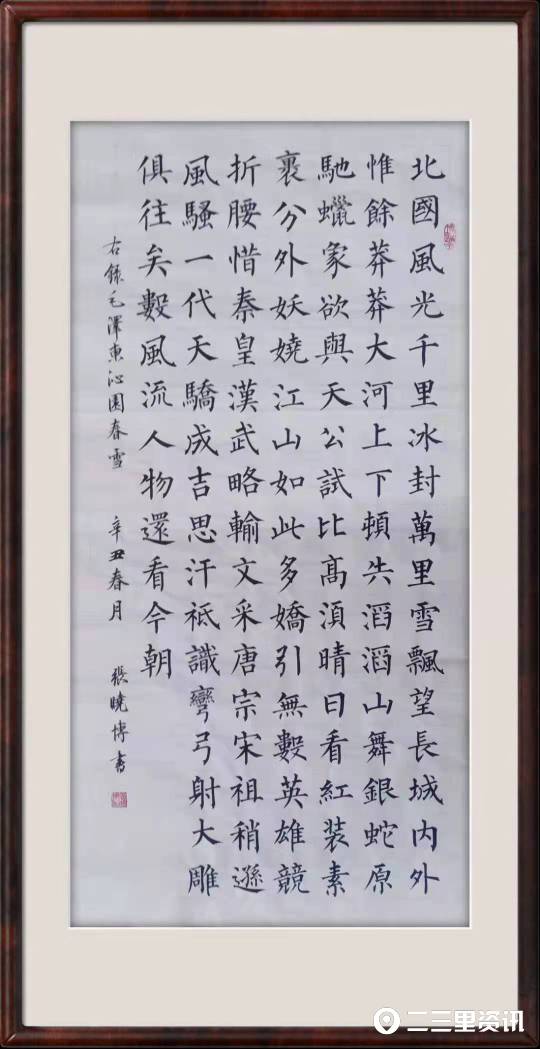 北國風光千里冰封萬里雪飄望長城内外
惟餘莽莽大河上下頓失滔滔山舞銀蛇原
馳蠟家欲與天公試比高湏晴日看紅装素
裹分外妖嬈江山如此多嬌引無數英雄競
折腰惜秦皇漢武略輸文采唐宗宋祖稍遜
風騷一代天驕成吉思汗祗識彎弓射大雕
俱往矣數風流人物還看今朝
右錄毛澤東沁園春雪 辛丑春月 張曉博書
二三里资讯